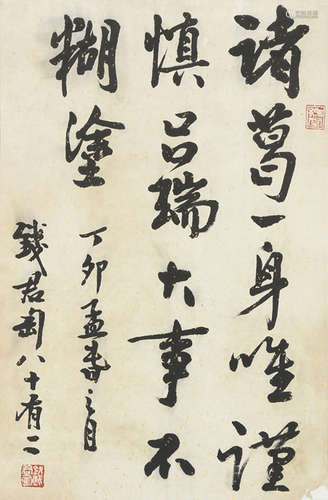 诸葛一身唯谨
慎吕端大事不
糊塗
丁卯孟春之月
钱君匋八十有二